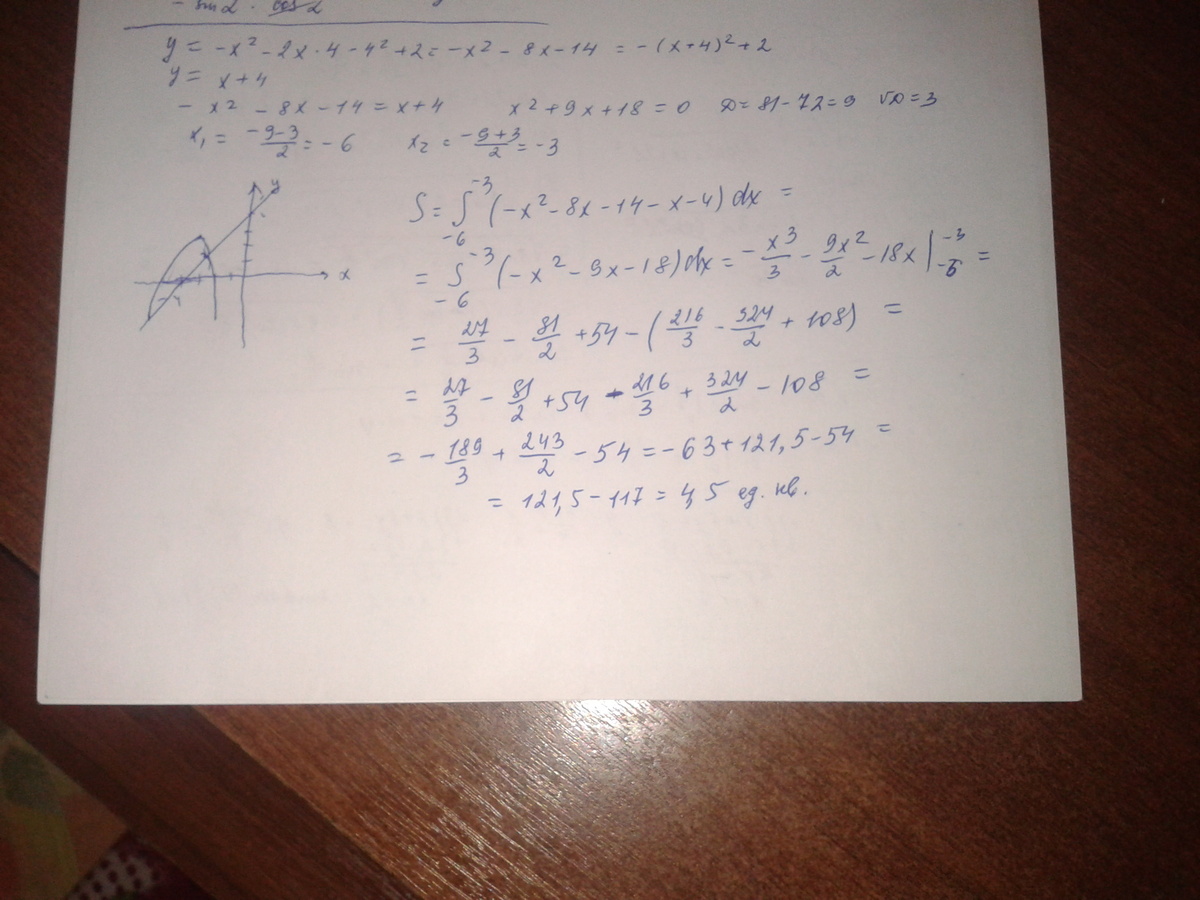 - sin2 · cos2
y = -x² - 2x·4 - 4² + 2 = -x² - 8x - 14 = -(x+4)² + 2
y = x+4
- x² - 8x - 14 = x+4 x² + 9x + 18 = 0 D = 81 - 72 = 9 √D = 3
x₁ = (-9-3)/2 = -6 x₂ = (-9+3)/2 = -3
y
x
S = ∫₋₆⁻³ (-x² - 8x - 14 - x - 4) dx =
= ∫₋₆⁻³ (-x² - 9x - 18) dx = - x³/3 - 9x²/2 - 18x |₋₆⁻³ =
= 27/3 - 81/2 + 54 - (216/3 - 324/2 + 108) =
= 27/3 - 81/2 + 54 - 216/3 + 324/2 - 108 =
= - 189/3 + 243/2 - 54 = -63 + 121,5 - 54 =
= 121,5 - 117 = 4,5 ед. кв.